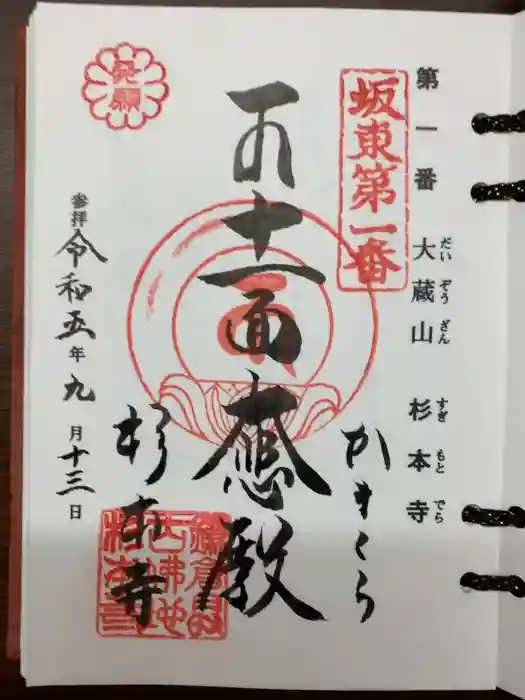 第一番 大蔵山 杉本寺
だいぞうざん すぎもとでら
坂東第一番
かまくら
十一面大悲殿
杉本寺
鎌倉最古佛地杉本寺
発願
参拝 令和五年九月十三日